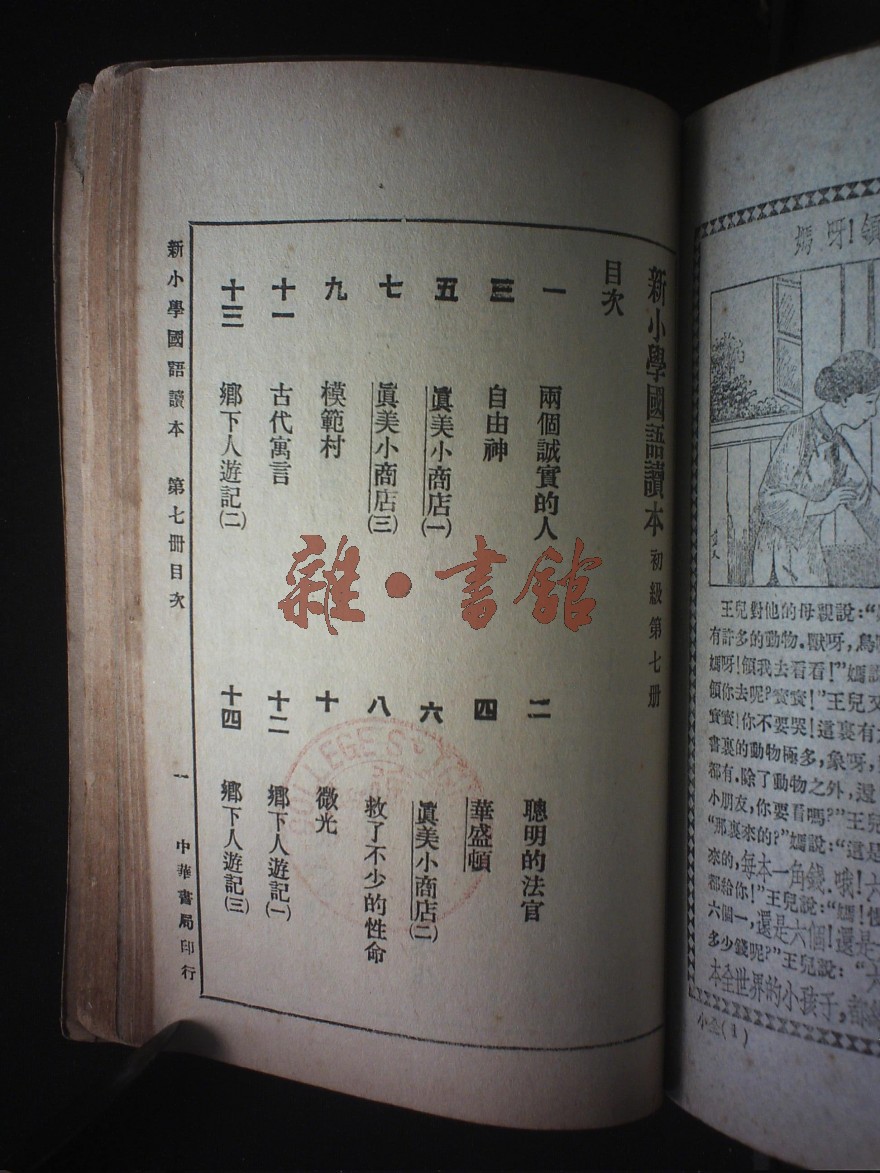 新小學國語讀本 初級第七册
目次
一 兩個誠實的人
二 聰明的法官
三 自由神
四 華盛頓
五 眞美小商店(一)
六 眞美小商店(二)
七 眞美小商店(三)
八 救了不少的性命
九 模範村
十 微光
十一 古代寓言
十二 鄉下人遊記(一)
十三 鄉下人遊記(二)
十四 鄉下人遊記(三)
新小學國語讀本 第七册目次 一 中華書局印行
雜·書館
COLLEGE
媽呀!領
王兒對他的母親說:“
有許多的動物.獸呀,鳥
媽呀!領我去看看!”媽說
領你去呢?寶寶!”王兒又
寶寶!你不要哭!這裏有
書裏的動物極多,象呀,
都有.除了動物之外,還
小朋友,你要看嗎?”王兒
“那裏來的?”媽說:“這是
來的,每本一角錢.哦!六
都給你!”王兒說:“媽!慢
六個一,還是六個!還是
多少錢呢?”王兒說:“六
本全世界的小孩子,都
(1)